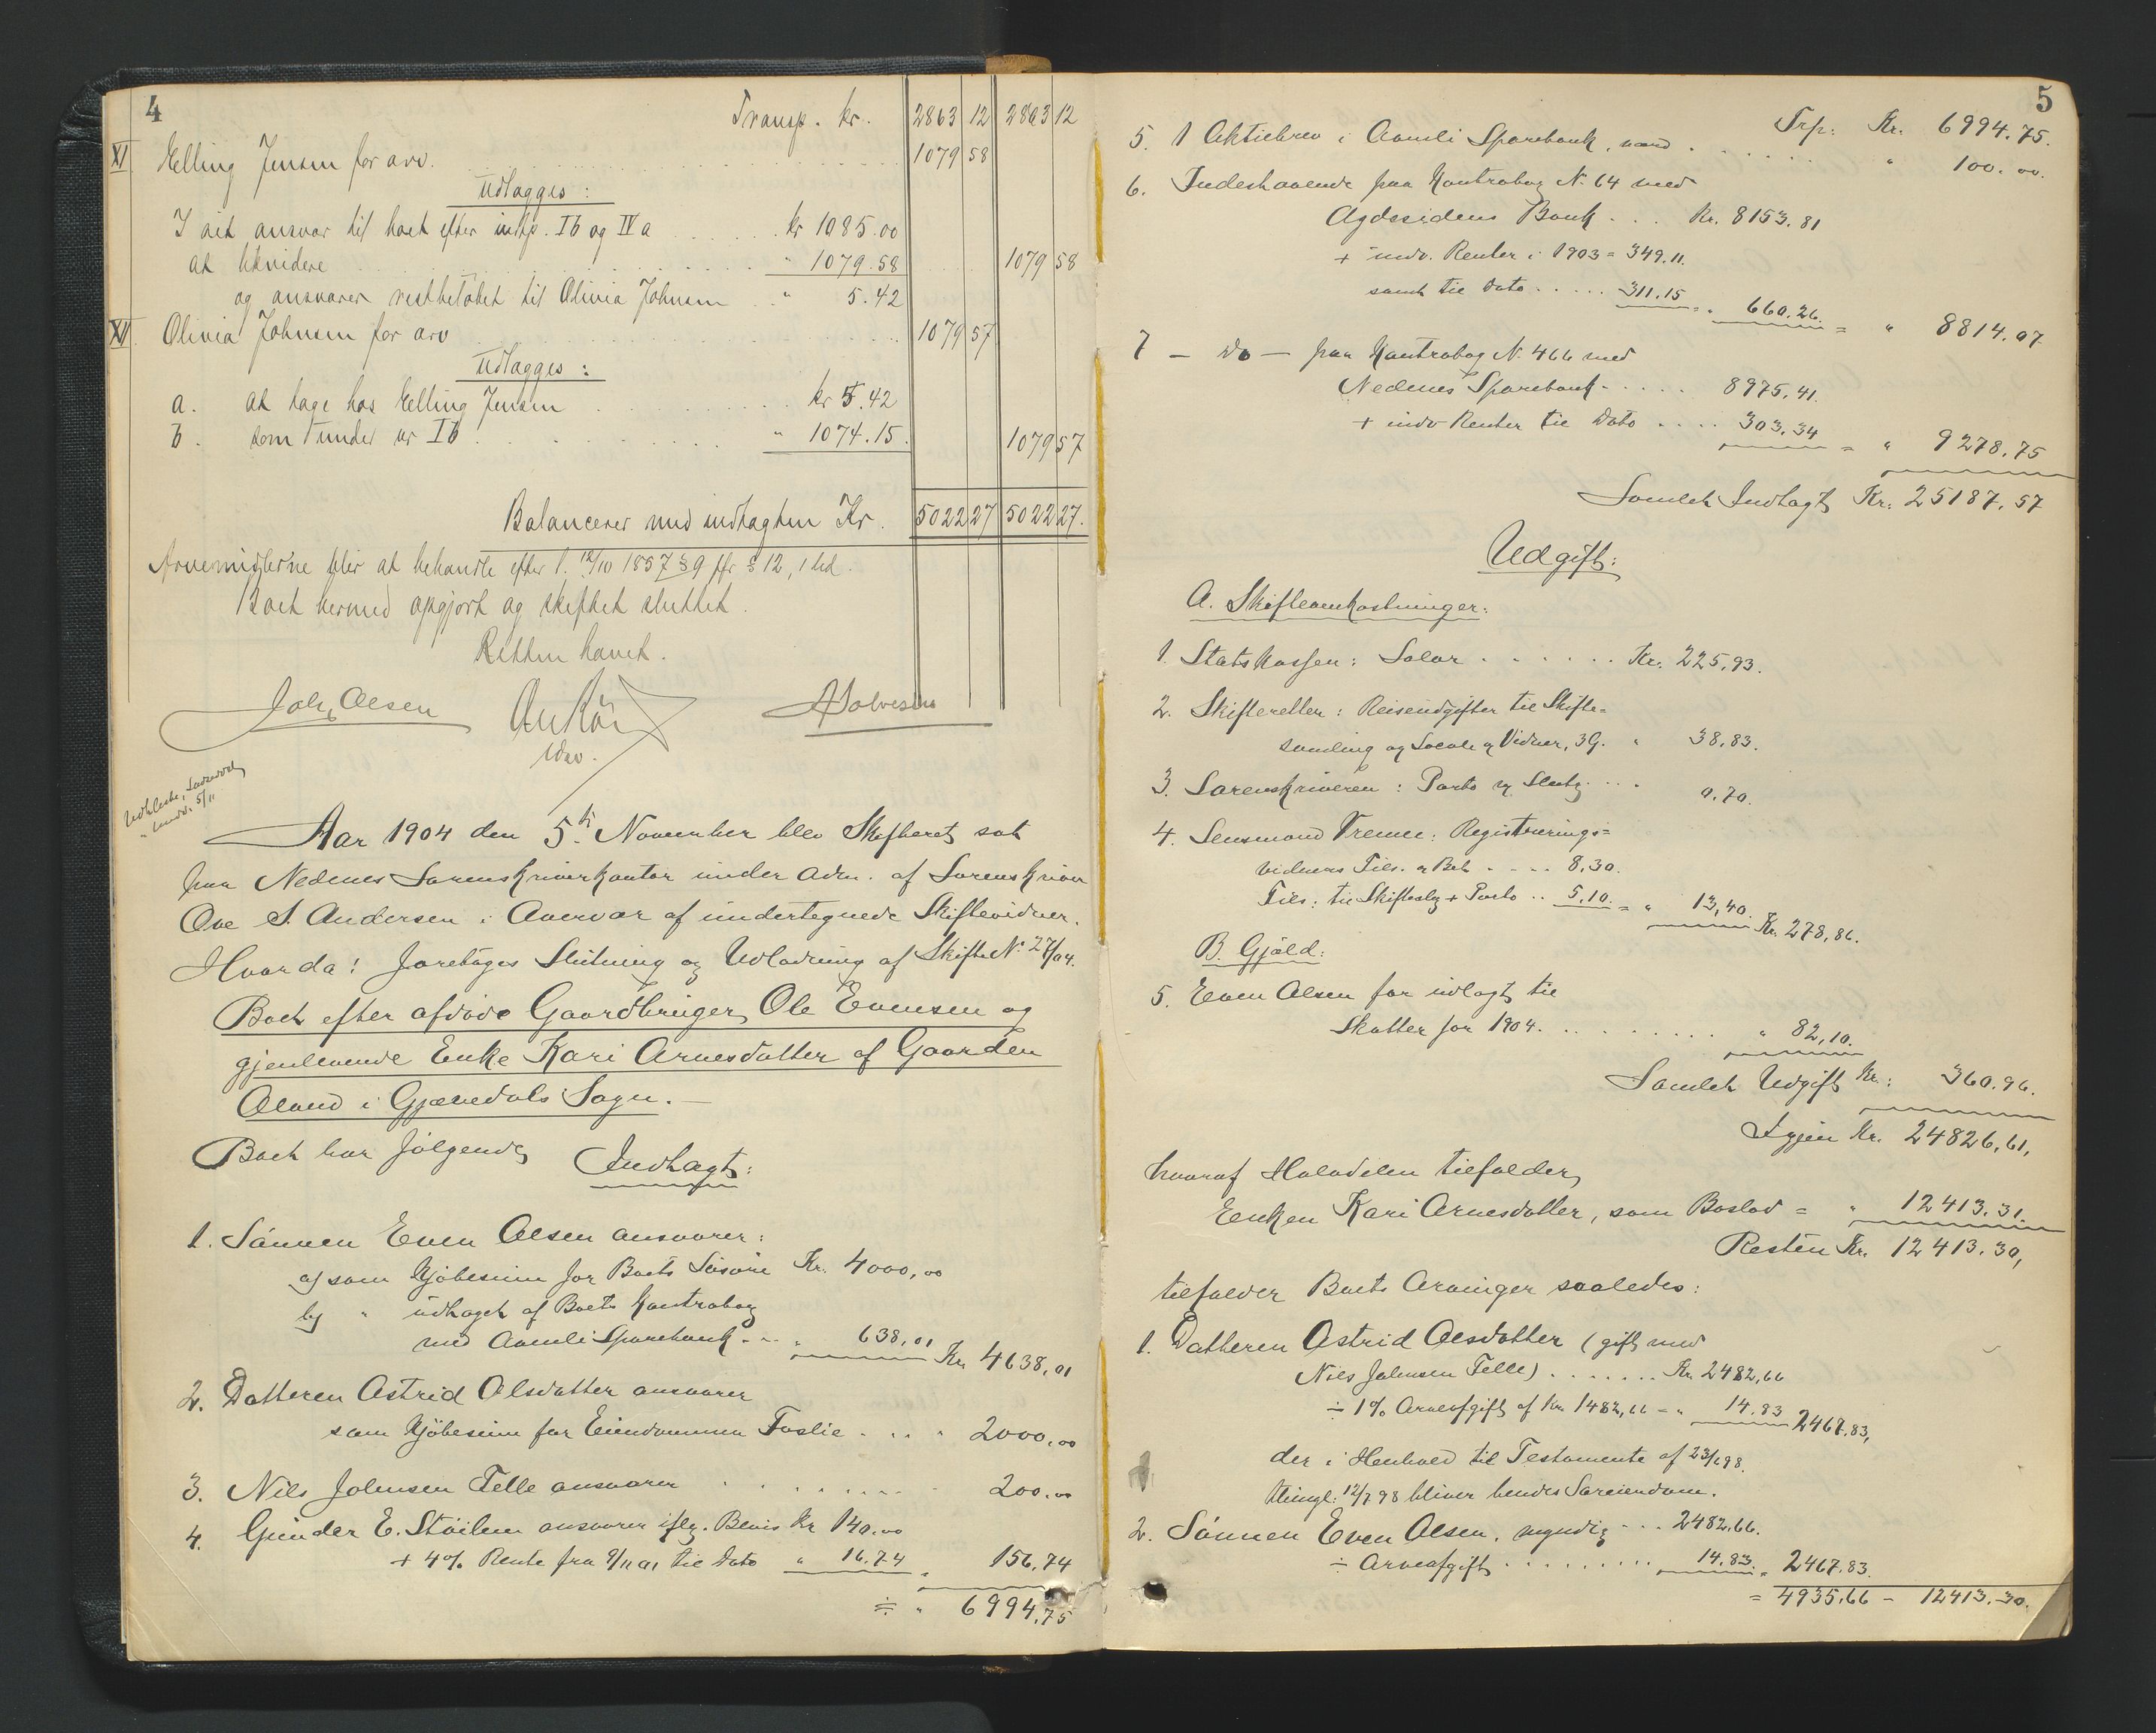 4
Transp. kr. 2863 12 2863 12
XI Elling Jensen for arv 1079 58
udlægges:
I sit ansvar til boet efter indtp. Ib og IVa kr 1085.00
at likvidere " 1079.58 1079 58
og ansvarer restbeløbet til Olivia Johnsen " 5.42
XII Olivia Johnsen for arv 1079 57
udlægges:
a. at tage hos Elling Jensen kr 5.42
b. som under nr Ib " 1074.15. 1079 57
Balancerer med indtægten Kr. 5022 27 5022 27.
Arvemidlerne blir at behandle efter l. 12/10 1857 § 9 jfr § 12, 1 led.
Boet hermed opgjort og skiftet sluttet.
Retten hævet.
Johs Olsen
Aar 1904 den 5te November blev Skifteret sat
paa Nedenes Sorenskriverkontor under Adm. af Sorenskriver
Ove S. Andersen i Overvær af undertegnede Skiftevidner.
Hvorda: foretages Slutning og Udlodning af Skifte No 27/04.
Boet efter afdøde Gaardbruger Ole Evensen og
gjenlevende Enke Kari Arnesdatter af Gaarden
Øland i Gjøvedals Sogn. —
Boet har følgende Indtægt:
1. Sønnen Even Olsen ansvarer:
a) som Kjøbesum for Boets Løsøre Kr. 4000,00
b) " udtaget af Boets Kontrabog
med Aamli Sparebank " 638,01 Kr. 4638,01
2. Datteren Astrid Olsdatter ansvarer
som Kjøbesum for Eiendommen Foslie " 2000,00
3. Nils Johnsen Felle ansvarer 200.00
4. Gunder E. Støilen ansvarer iflg. Bevis Kr 140.00
+ 4% Rente fra 9/11 01 til Dato " 16.74 " 156,74
" 6994,75
5
Trp: Kr. 6994.75.
5. 1 Aktiebrev i Aamli Sparebank, værd " 100.00.
6. Indestaaende paa Kontrabog No 64 med
Agdesidens Bank Kr. 8153.81
+ indv. Renter i 1903 = 349.11.
samt til Dato 311.15 = " 660.26. = " 8814.07
7 — Do — paa Kontrabog No 466 med
Nedenes Sparebank 8975,41.
+ indv Renter til Dato 303,34 = " 9278,75
Samlet Indtægt Kr. 25187,57
Udgift:
A. Skifteomkostninger:
1. Statskassen: Salær Kr. 225,93.
2. Skifteretten: Reiseudgifter til Skifte-
samling og Locale & Vidner, 3 G. " 38,83.
3. Sorenskriveren: Porto v. Slutg. 0.70.
4. Lensmand Tremer: Registrerings-
vidners Tils. & Bet 8,30.
Tils: til Skifteslg + Porto 5.10. = " 13,40. Kr. 278,86.
B. Gjæld:
5. Even Olsen for udlagt til
Skatter for 1904. " 82,10.
Samlet Udgift Kr: 360.96.
Igjen Kr. 24826,61,
hvoraf Halvdelen tilfalder
Enken Kari Arnesdatter, som Boslod = " 12413.31.
Resten Kr. 12413.30,
tilfalder Boets Arvinger saaledes:
1. Datteren Astrid Olsdatter (gift med
Nils Johnsen Felle) Kr. 2482,66
÷ 1% Arveafgift af Kr. 1482,66 = " 14.83 2467.83,
der i Henhold til Testamente af 23/6 98.
thingl. 12/7 98 bliver hendes Særeiendom.
2. Sønnen Even Olsen, myndig 2482.66.
÷ Arveafgift 14.83. " 2467.83.
= 4935.66 – 12413.30.